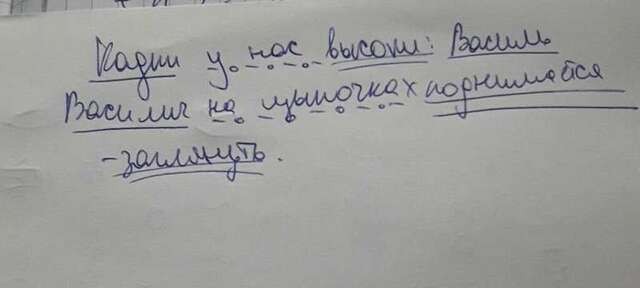 Кадки у нас высоки: Василь
Василич на цыпочках поднимайся
- заглянуть.